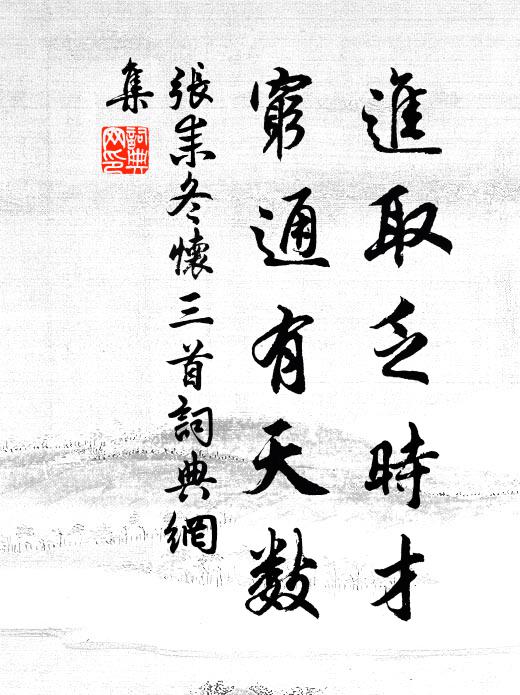 進取乏時才
窮通有天數
張耒冬懷三首詞典網
集
詞典
网印